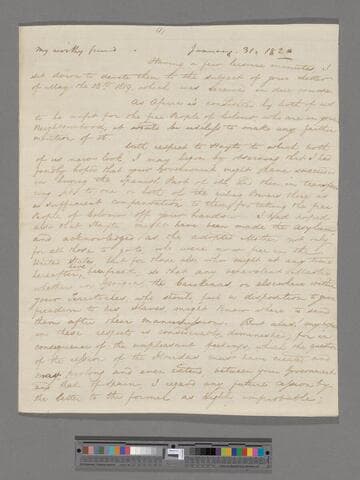 My worthy friend January 31, 182
Having a few leisure minutes I
sit down to devote them to the subject of your letter
of May the 18th 1819, which was received in due course
As Africa is considered by both of us
to be unfit for the free People of Colour who are in your
Neighbourhood, it would be useless to make any further
mention of it.
With respect to Hayti to which both
of us now look, I may begin by observing that I had
fondly hoped that your Government might have succeeded
in buying the Spanish Part of it and then in transferring
it to one or both of the ruling Powers there as
a sufficient compensation to them for taking the free
People of Colour off your hands. I had hoped
also that Hayti might have been made the asylum
and acknowledged as the adopted Mother, not only
for all those who were now free in the
United States, but for those also who might at any time
hereafter be made free, so that any benevolent individual
whether in Georgia the Carolinas or elsewhere within
your Territories, who should feel a disposition to give
freedom to his Slaves might know where to send
them after their manumission. But alas, my hope
in these respects is considerably diminished, for in
consequence of the unpleasant feelings, which the
of the cession of the Floridas must have created and
may prolong and even extend between your Government
and that of Spain, I regard any future cession by
the latter to the former as highly improbable;